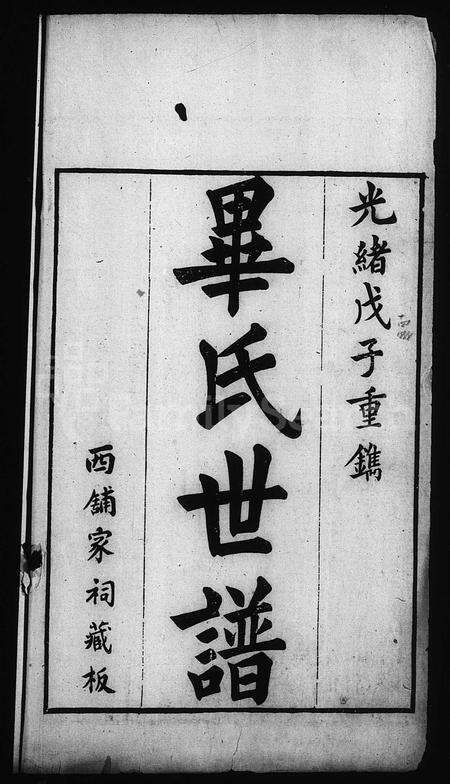 光緒戊子重鐫
畢氏世譜
西舖家祠藏板